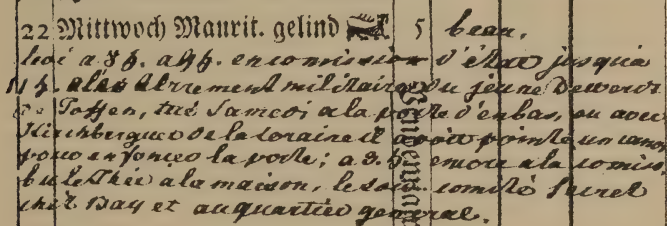 22 Mittwoch Maurit. gelind 5 beau.
levé a 3 h. a 4 h. en comission d'état jusqu'a
11 h. a l'enterrement militaire du jeune Dewerdt
de Toffen, tué Samedi a la porte d'enbas, ou avec
Kirchberguer de la Loraine il avoit pointé un canon
pour enfoncer la porte; a 3. h. encore a la comiss.
bu le Thée a la maison, le soir comité secret
chez Bay et au quartier general.